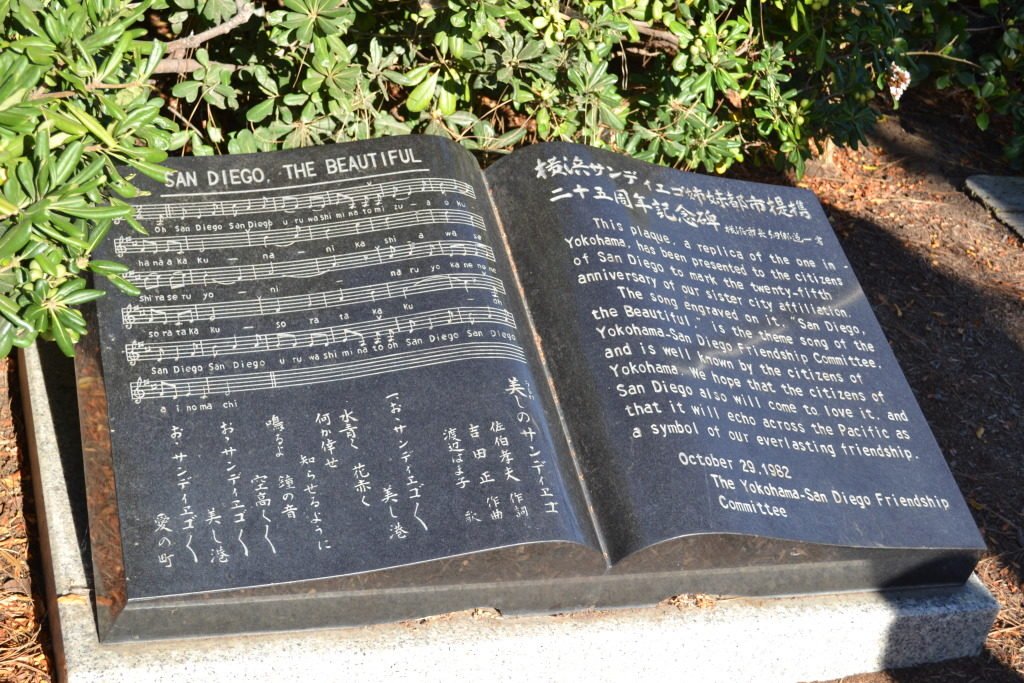 SAN DIEGO, THE BEAUTIFUL
Oh San Diego San Diego u ru wa shi mi na to mi zu — a o ku
ha na a ka ku — na — ni ka shi a wa se
Shi ra se ru yo — ni — na ru yo ka ne no ne
so ra ta ka ku — so ra ta ka ku — oh
San Diego San Diego u ru wa shi mi na to oh San Diego San Diego
a i no ma chi
美しのサンディエゴ
佐伯孝夫 作詞
吉田正 作曲
渡辺はま子 歌
一、おゝサンディエゴ〱 美し港
水青く 花赤く
何か倖せ 知らせるように
鳴るよ 鐘の音
空高く〱
おゝサンディエゴ〱 美し港
おゝサンディエゴ〱 愛の町
横浜サンディエゴ姉妹都市提携
二十五周年記念碑 横浜市長 細郷道一 書
This plaque, a replica of the one in
Yokohama, has been presented to the citizens
of San Diego to mark the twenty-fifth
anniversary of our sister city affiliation.
The song engraved on it, "San Diego,
the Beautiful," is the theme song of the
Yokohama-San Diego Friendship Committee,
and is well known by the citizens of
Yokohama. We hope that the citizens of
San Diego also will come to love it, and
that it will echo across the Pacific as
a symbol of our everlasting friendship.
October 29, 1982
The Yokohama-San Diego Friendship
Committee